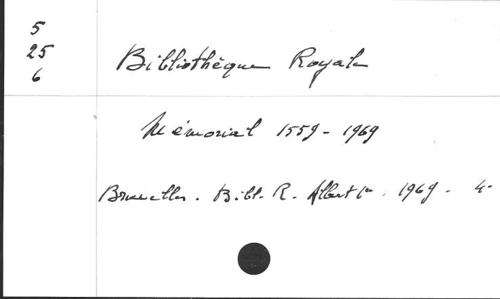 5
25
6
Bibliothèque Royale
Mémorial 1559-1969
Bruxelles. Bibl. R. Albert Ier. 1969. 4°